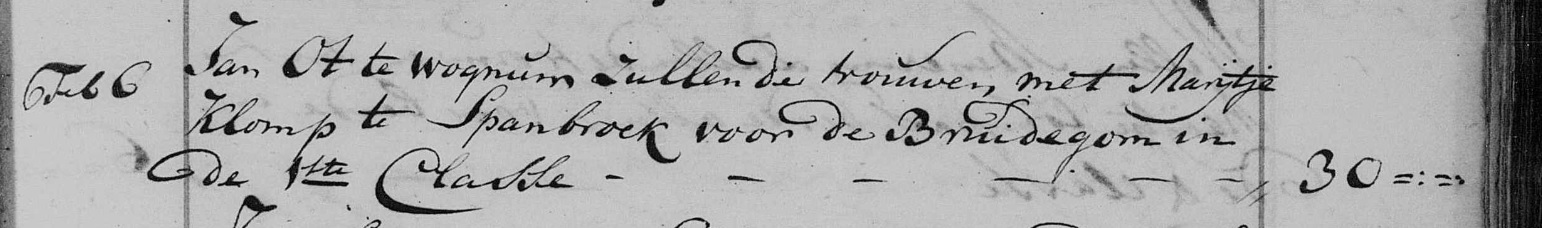 Feb 6 Jan Ot te wognum zullende trouwen met Marijtje
Klomp te Spanbroek voor de Bruidegom in
de 1ste Classe - - - - - - „ 30 =:=: